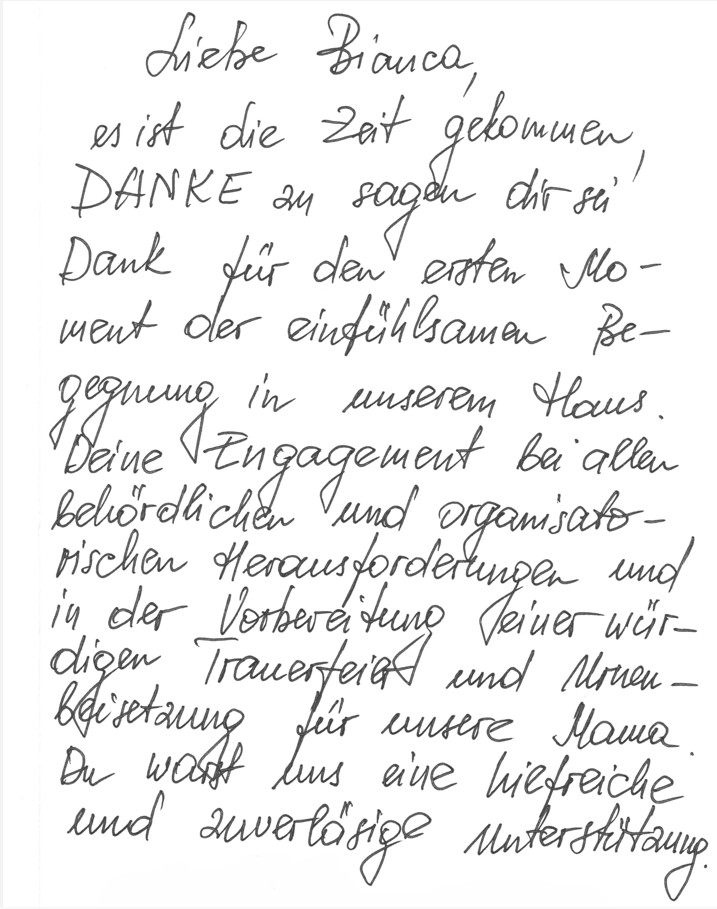 Liebe Bianca,
es ist die Zeit gekommen,
DANKE zu sagen dir sei
Dank für den ersten Mo-
ment der einfühlsamen Be-
gegnung in unserem Haus.
Deine Engagement bei allen
behördlichen und organisato-
rischen Herausforderungen und
in der Vorbereitung einer wür-
digen Trauerfeier und Urnen-
beisetzung für unsere Mama.
Du warst uns eine hilfreiche
und zuverläsige Unterstützung.